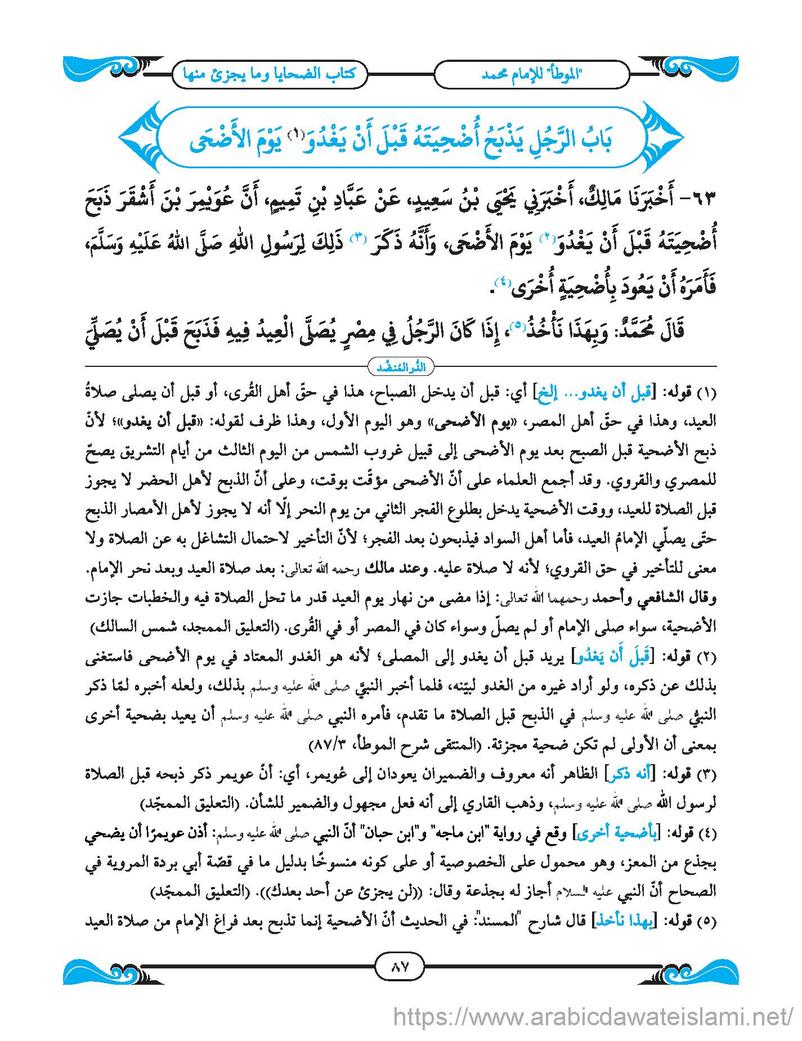 "الموطأ" للإمام محمد
كتاب الضحايا وما يجزئ منها
بَابُ الرَّجُلِ يَذْبَحُ أُضْحِيَتَهُ قَبْلَ أَنْ يَغْدُوَ(١) يَوْمَ الأَضْحَى
٦٣- أَخْبَرَنَا مَالِكٌ، أَخْبَرَنِي يَحْيَى بْنُ سَعِيدٍ، عَنْ عَبَّادِ بْنِ تَمِيمٍ، أَنَّ عُوَيْمِرَ بْنَ أَشْقَرَ ذَبَحَ
أُضْحِيَتَهُ قَبْلَ أَنْ يَغْدُوَ(٢) يَوْمَ الأَضْحَى، وَأَنَّهُ ذَكَرَ (٣) ذَلِكَ لِرَسُولِ اللهِ صَلَّى اللهُ عَلَيْهِ وَسَلَّمَ،
فَأَمَرَهُ أَنْ يَعُودَ بِأُضْحِيَةٍ أُخْرَى(٤).
قَالَ مُحَمَّدٌ: وَبِهَذَا نَأْخُذُ(٥)، إِذَا كَانَ الرَّجُلُ فِي مِصْرٍ يُصَلَّى الْعِيدُ فِيهِ فَذَبَحَ قَبْلَ أَنْ يُصَلِّيَ
الدُّر المُنضَّد
(١) قوله: [قبل أن يغدو... إلخ] أي: قبل أن يدخل الصباح، هذا في حقّ أهل القُرى، أو قبل أن يصلى صلاةُ
العيد، وهذا في حقّ أهل المصر، «يوم الأضحى» وهو اليوم الأول، وهذا ظرف لقوله: «قبل أن يغدو»؛ لأنّ
ذبح الأضحية قبل الصبح بعد يوم الأضحى إلى قبيل غروب الشمس من اليوم الثالث من أيام التشريق يصحّ
للمصري والقروي. وقد أجمع العلماء على أنّ الأضحى مؤقّت بوقت، وعلى أنّ الذبح لأهل الحضر لا يجوز
قبل الصلاة للعيد، ووقت الأضحية يدخل بطلوع الفجر الثاني من يوم النحر إلّا أنه لا يجوز لأهل الأمصار الذبح
حتّى يصلّي الإمامُ العيد، فأما أهل السواد فيذبحون بعد الفجر؛ لأنّ التأخير لاحتمال التشاغل به عن الصلاة ولا
معنى للتأخير في حق القروي؛ لأنه لا صلاة عليه. وعند مالك رحمه الله تعالى: بعد صلاة العيد وبعد نحر الإمام.
وقال الشافعي وأحمد رحمهما الله تعالى: إذا مضى من نهار يوم العيد قدر ما تحل الصلاة فيه والخطبات جازت
الأضحية، سواء صلى الإمام أو لم يصلّ وسواء كان في المصر أو في القُرى. (التعليق الممجد، شمس السالك)
(٢) قوله: [قَبلَ أَن يَغدُو] يريد قبل أن يغدو إلى المصلى؛ لأنه هو الغدو المعتاد في يوم الأضحى فاستغنى
بذلك عن ذكره، ولو أراد غيره من الغدو لبيّنه، فلما أخبر النبيَّ صلى الله عليه وسلم بذلك، ولعله أخبره لمّا ذكر
النبيُّ صلى الله عليه وسلم في الذبح قبل الصلاة ما تقدم، فأمره النبي صلى الله عليه وسلم أن يعيد بضحية أخرى
بمعنى أن الأولى لم تكن ضحية مجزئة. (المنتقى شرح الموطأ، ٨٧/٣)
(٣) قوله: [أنه ذكر] الظاهر أنه معروف والضميران يعودان إلى عُويمر، أي: أنّ عويمر ذكر ذبحه قبل الصلاة
لرسول الله صلى الله عليه وسلم، وذهب القاري إلى أنه فعل مجهول والضمير للشأن. (التعليق الممجّد)
(٤) قوله: [بأضحية أخرى] وقع في رواية "ابن ماجه" و"ابن حبان" أنّ النبي صلى الله عليه وسلم: أذن عويمرًا أن يضحي
بجذع من المعز، وهو محمول على الخصوصية أو على كونه منسوخًا بدليل ما في قصّة أبي بردة المروية في
الصحاح أنّ النبي عليه السلام أجاز له بجذعة وقال: ((لن يجزئ عن أحد بعدك)). (التعليق الممجّد)
(٥) قوله: [بهذا نأخذ] قال شارح "المسند": في الحديث أنّ الأضحية إنما تذبح بعد فراغ الإمام من صلاة العيد
٨٧
https://www.arabicdawateislami.net/